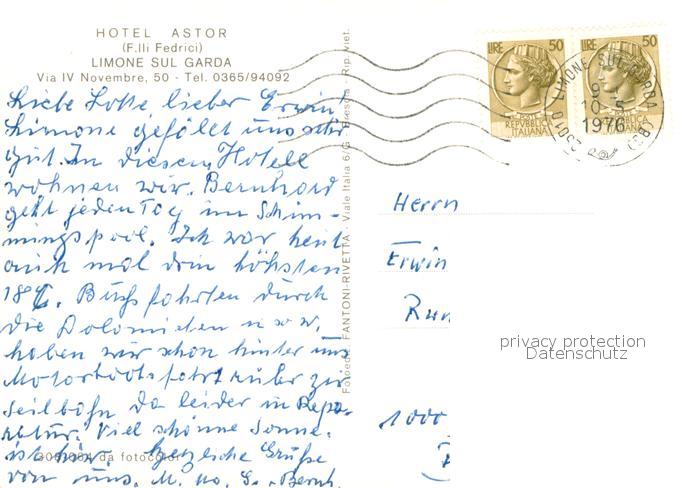 HOTEL ASTOR
(F.lli Fedrici)
LIMONE SUL GARDA
Via IV Novembre, 50 - Tel. 0365/94092
Liebe Lotte lieber Erwin
Limone gefällt uns sehr
gut. In diesem Hotell
wohnen wir. Bernhard
geht jeden Tag im Schim-
mingspool. Ich war heut
auch mal drin höchsten
18°C. Busfahrten durch
die Dolomiten u s w.
haben wir schon hinter uns
Motorbootsfahrt rüber zur
Seilbahn da leider in Repa-
ratur. Viel schönne Sonne.
ist hier. Herzliche Grüße
von uns. M. G. Bernh.
da fotocolor
Fotoediz. FANTONI-RIVETTA - Viale Italia 6/G - Brescia - Rip. viet.
LIRE 50
REPVBBLICA
ITALIANA
LIRE 50
LIMONE SUL GARDA
25010
(BS)
9-
10-5
1976
Herrn
Erwin
1000
privacy protection
Datenschutz